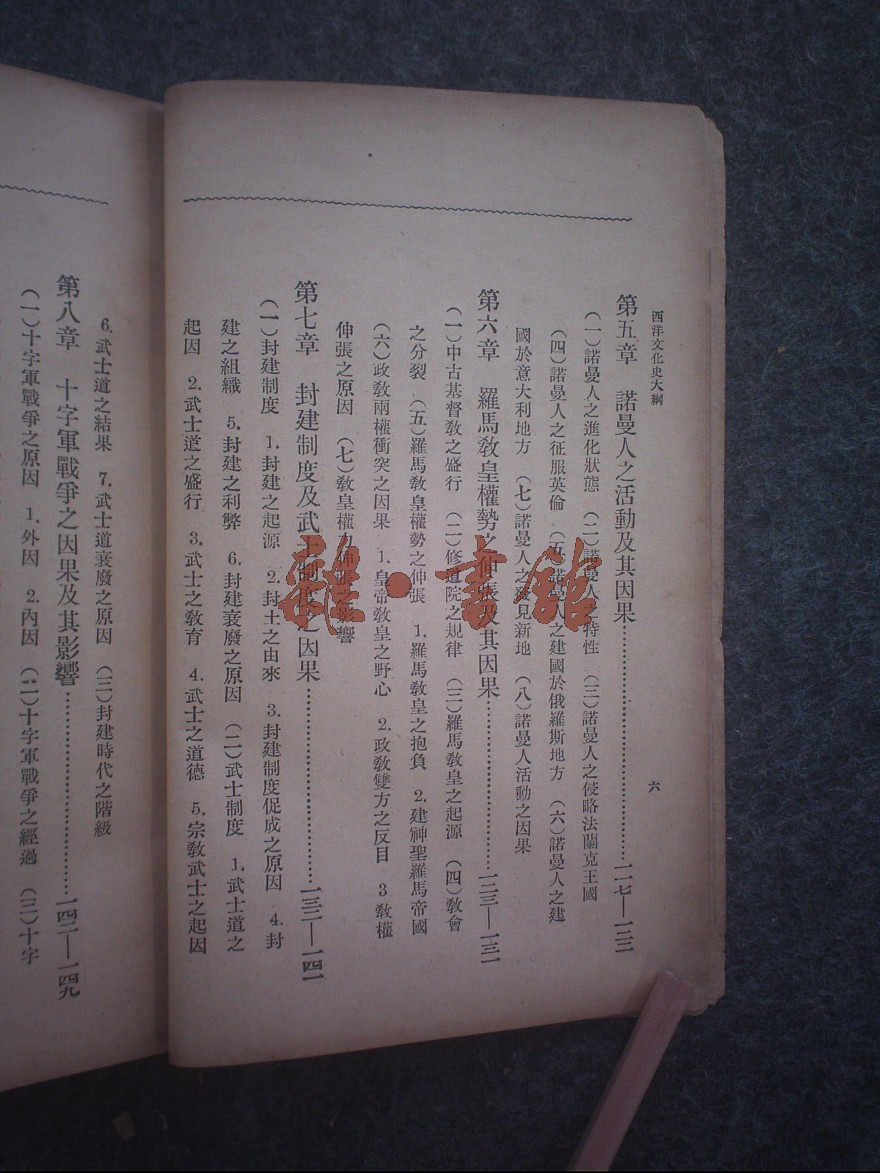 西洋文化史大綱
六
第五章 諾曼人之活動及其因果……一一七—一二二
(一)諾曼人之進化狀態 (二)諾曼人之特性 (三)諾曼人之侵略法蘭克王國
(四)諾曼人之征服英倫 (五)諾曼人之建國於俄羅斯地方 (六)諾曼人之建
國於意大利地方 (七)諾曼人之發見新地 (八)諾曼人活動之因果
第六章 羅馬敎皇權勢之伸張及其因果……一二三—一三一
(一)中古基督敎之盛行 (二)修道院之規律 (三)羅馬敎皇之起源 (四)敎會
之分裂 (五)羅馬敎皇權勢之伸張 1.羅馬敎皇之抱負 2.建神聖羅馬帝國
(六)政敎兩權衝突之因果 1.皇帝敎皇之野心 2.政敎雙方之反目 3敎權
伸張之原因 (七)敎皇權力伸張之影響
第七章 封建制度及武士制度之因果……一三二—一四一
(一)封建制度 1.封建之起源 2.封土之由來 3.封建制度促成之原因 4.封
建之組織 5.封建之利弊 6.封建衰廢之原因 (二)武士制度 1.武士道之
起因 2.武士道之盛行 3.武士之敎育 4.武士之道德 5.宗敎武士之起因
6.武士道之結果 7.武士道衰廢之原因 (三)封建時代之階級
第八章 十字軍戰爭之因果及其影響……一四二—一四九
(一)十字軍戰爭之原因 1.外因 2.內因 (二)十字軍戰爭之經過 (三)十字
雜·書館